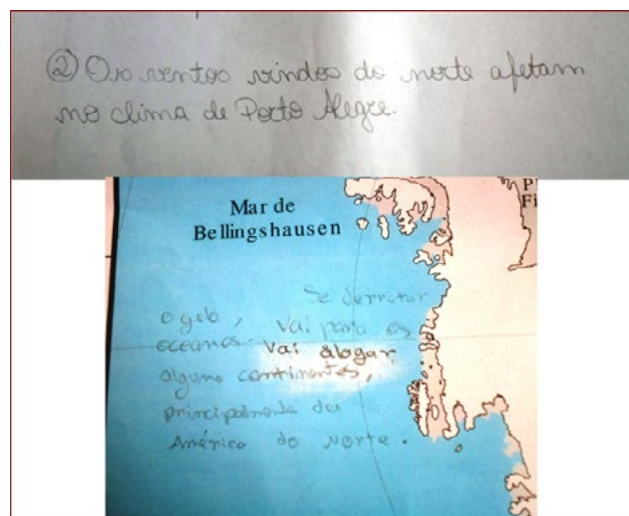 ② Os ventos vindos do norte afetam
no clima de Porto Alegre.
Mar de
Bellingshausen
P
Fi
Se derreter
o gelo, vai para os
oceanos. Vai alagar
alguns continentes,
principalmente da
América do norte.